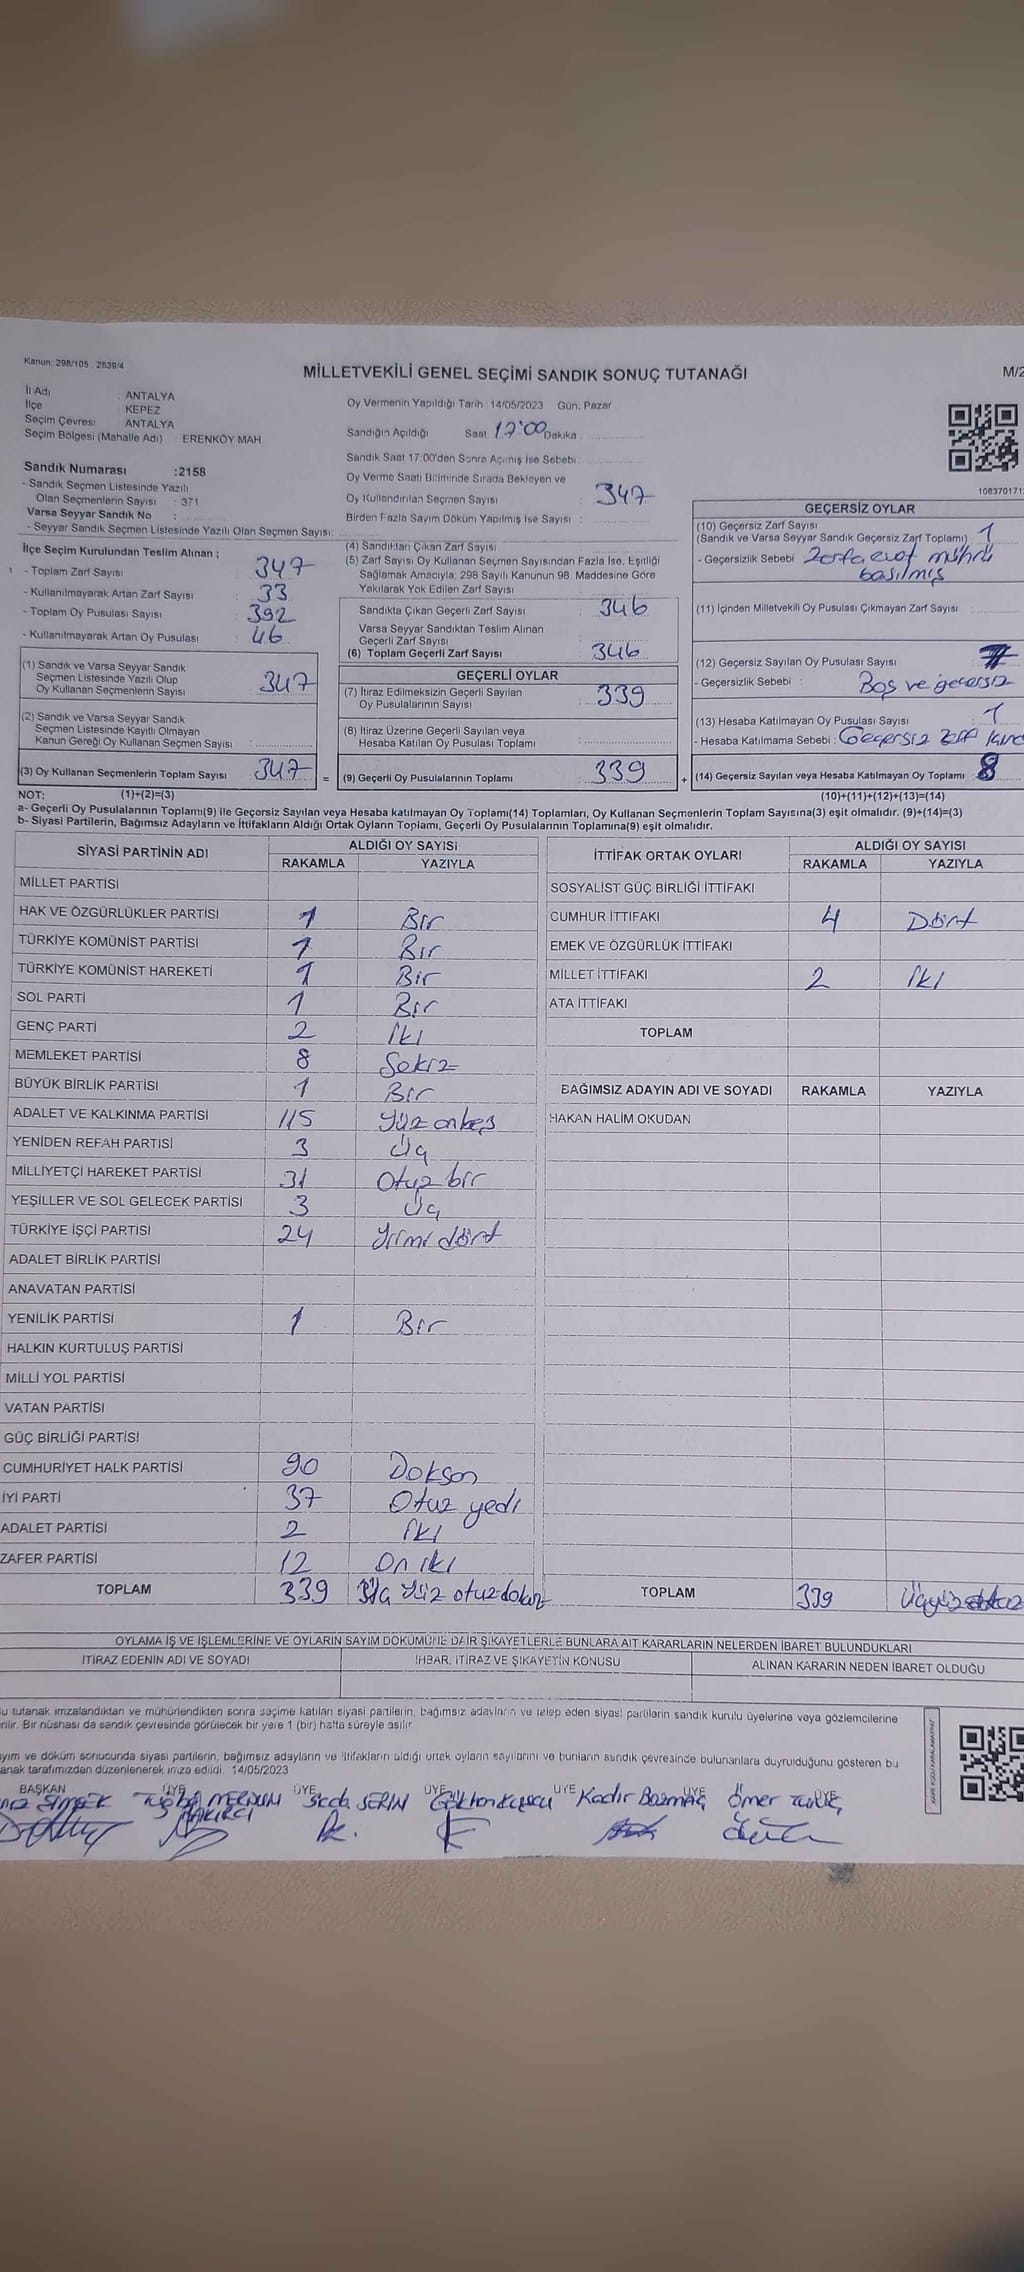 Kanun: 298/105 . 2839/4
MİLLETVEKİLİ GENEL SEÇİMİ SANDIK SONUÇ TUTANAĞI
M/2
İl Adı : ANTALYA
İlçe KEPEZ
Seçim Çevresi ANTALYA
Seçim Bölgesi (Mahalle Adı) : ERENKÖY MAH.
Oy Vermenin Yapıldığı Tarih : 14/05/2023 Gün: Pazar
Sandığın Açıldığı Saat 17:00 Dakika
Sandık Saat 17:00'den Sonra Açılmış İse Sebebi :
Oy Verme Saati Bitiminde Sırada Bekleyen ve
Oy Kullandırılan Seçmen Sayısı : 347
Birden Fazla Sayım Döküm Yapılmış İse Sayısı :
Sandık Numarası :2158
- Sandık Seçmen Listesinde Yazılı
Olan Seçmenlerin Sayısı : 371
Varsa Seyyar Sandık No :
- Seyyar Sandık Seçmen Listesinde Yazılı Olan Seçmen Sayısı:
108370171
İlçe Seçim Kurulundan Teslim Alınan ;
- Toplam Zarf Sayısı : 347
- Kullanılmayarak Artan Zarf Sayısı : 33
- Toplam Oy Pusulası Sayısı : 392
- Kullanılmayarak Artan Oy Pusulası : 46
(1) Sandık ve Varsa Seyyar Sandık
Seçmen Listesinde Yazılı Olup
Oy Kullanan Seçmenlerin Sayısı : 347
(2) Sandık ve Varsa Seyyar Sandık
Seçmen Listesinde Kayıtlı Olmayan
Kanun Gereği Oy Kullanan Seçmen Sayısı :
(3) Oy Kullanan Seçmenlerin Toplam Sayısı : 347 =
(4) Sandıktan Çıkan Zarf Sayısı
(5) Zarf Sayısı Oy Kullanan Seçmen Sayısından Fazla İse, Eşitliği
Sağlamak Amacıyla; 298 Sayılı Kanunun 98. Maddesine Göre
Yakılarak Yok Edilen Zarf Sayısı
Sandıkta Çıkan Geçerli Zarf Sayısı : 346
Varsa Seyyar Sandıktan Teslim Alınan
Geçerli Zarf Sayısı
(6) Toplam Geçerli Zarf Sayısı : 346
GEÇERLİ OYLAR
(7) İtiraz Edilmeksizin Geçerli Sayılan
Oy Pusulalarının Sayısı : 339
(8) İtiraz Üzerine Geçerli Sayılan veya
Hesaba Katılan Oy Pusulası Toplamı :
(9) Geçerli Oy Pusulalarının Toplamı : 339 +
GEÇERSİZ OYLAR
(10) Geçersiz Zarf Sayısı
(Sandık ve Varsa Seyyar Sandık Geçersiz Zarf Toplamı) : 1
- Geçersizlik Sebebi : Zarfa evet mührü
basılmış
(11) İçinden Milletvekili Oy Pusulası Çıkmayan Zarf Sayısı :
(12) Geçersiz Sayılan Oy Pusulası Sayısı : 7
- Geçersizlik Sebebi : Boş ve geçersiz
(13) Hesaba Katılmayan Oy Pusulası Sayısı : 1
- Hesaba Katılmama Sebebi : Geçersiz zarf
(14) Geçersiz Sayılan veya Hesaba Katılmayan Oy Toplamı : 8
NOT: (1)+(2)=(3)
(10)+(11)+(12)+(13)=(14)
a- Geçerli Oy Pusulalarının Toplamı(9) ile Geçersiz Sayılan veya Hesaba katılmayan Oy Toplamı(14) Toplamları, Oy Kullanan Seçmenlerin Toplam Sayısına(3) eşit olmalıdır. (9)+(14)=(3)
b- Siyasi Partilerin, Bağımsız Adayların ve İttifakların Aldığı Ortak Oyların Toplamı, Geçerli Oy Pusulalarının Toplamına(9) eşit olmalıdır.
SİYASİ PARTİNİN ADI ALDIĞI OY SAYISI
RAKAMLA YAZIYLA
MİLLET PARTİSİ
HAK VE ÖZGÜRLÜKLER PARTİSİ 1 Bir
TÜRKİYE KOMÜNİST PARTİSİ 1 Bir
TÜRKİYE KOMÜNİST HAREKETİ 1 Bir
SOL PARTİ 1 Bir
GENÇ PARTİ 2 İki
MEMLEKET PARTİSİ 8 Sekiz
BÜYÜK BİRLİK PARTİSİ 1 Bir
ADALET VE KALKINMA PARTİSİ 115 Yüz onbeş
YENİDEN REFAH PARTİSİ 3 Üç
MİLLİYETÇİ HAREKET PARTİSİ 31 Otuz bir
YEŞİLLER VE SOL GELECEK PARTİSİ 3 Üç
TÜRKİYE İŞÇİ PARTİSİ 24 Yirmi dört
ADALET BİRLİK PARTİSİ
ANAVATAN PARTİSİ
YENİLİK PARTİSİ 1 Bir
HALKIN KURTULUŞ PARTİSİ
MİLLİ YOL PARTİSİ
VATAN PARTİSİ
GÜÇ BİRLİĞİ PARTİSİ
CUMHURİYET HALK PARTİSİ 90 Doksan
İYİ PARTİ 37 Otuz yedi
ADALET PARTİSİ 2 İki
ZAFER PARTİSİ 12 On iki
TOPLAM 339 Üç Yüz otuzdokuz
İTTİFAK ORTAK OYLARI ALDIĞI OY SAYISI
RAKAMLA YAZIYLA
SOSYALİST GÜÇ BİRLİĞİ İTTİFAKI
CUMHUR İTTİFAKI 4 Dört
EMEK VE ÖZGÜRLÜK İTTİFAKI
MİLLET İTTİFAKI 2 İki
ATA İTTİFAKI
TOPLAM
BAĞIMSIZ ADAYIN ADI VE SOYADI RAKAMLA YAZIYLA
HAKAN HALİM OKUDAN
TOPLAM 339
OYLAMA İŞ VE İŞLEMLERİNE VE OYLARIN SAYIM DÖKÜMÜNE DAİR ŞİKAYETLERLE BUNLARA AİT KARARLARIN NELERDEN İBARET BULUNDUKLARI
İTİRAZ EDENİN ADI VE SOYADI İHBAR, İTİRAZ VE ŞİKAYETİN KONUSU ALINAN KARARIN NEDEN İBARET OLDUĞU
u tutanak imzalandıktan ve mühürlendikten sonra seçime katılan siyasi partilerin, bağımsız adayların ve talep eden siyasi partilerin sandık kurulu üyelerine veya gözlemcilerine
rilir. Bir nüshası da sandık çevresinde görülecek bir yere 1 (bir) hafta süreyle asılır.
yım ve döküm sonucunda siyasi partilerin, bağımsız adayların ve ittifakların aldığı ortak oyların sayılarını ve bunların sandık çevresinde bulunanlara duyrulduğunu gösteren bu
anak tarafımızdan düzenlenerek imza edildi. 14/05/2023
BAŞKAN ÜYE ÜYE ÜYE ÜYE ÜYE ÜYE
ŞİMŞEK Tuğba MERDUN Seda SERİN Gökhan Kuşcu Kadir Bozmaç Ömer
ÇAKIRCI